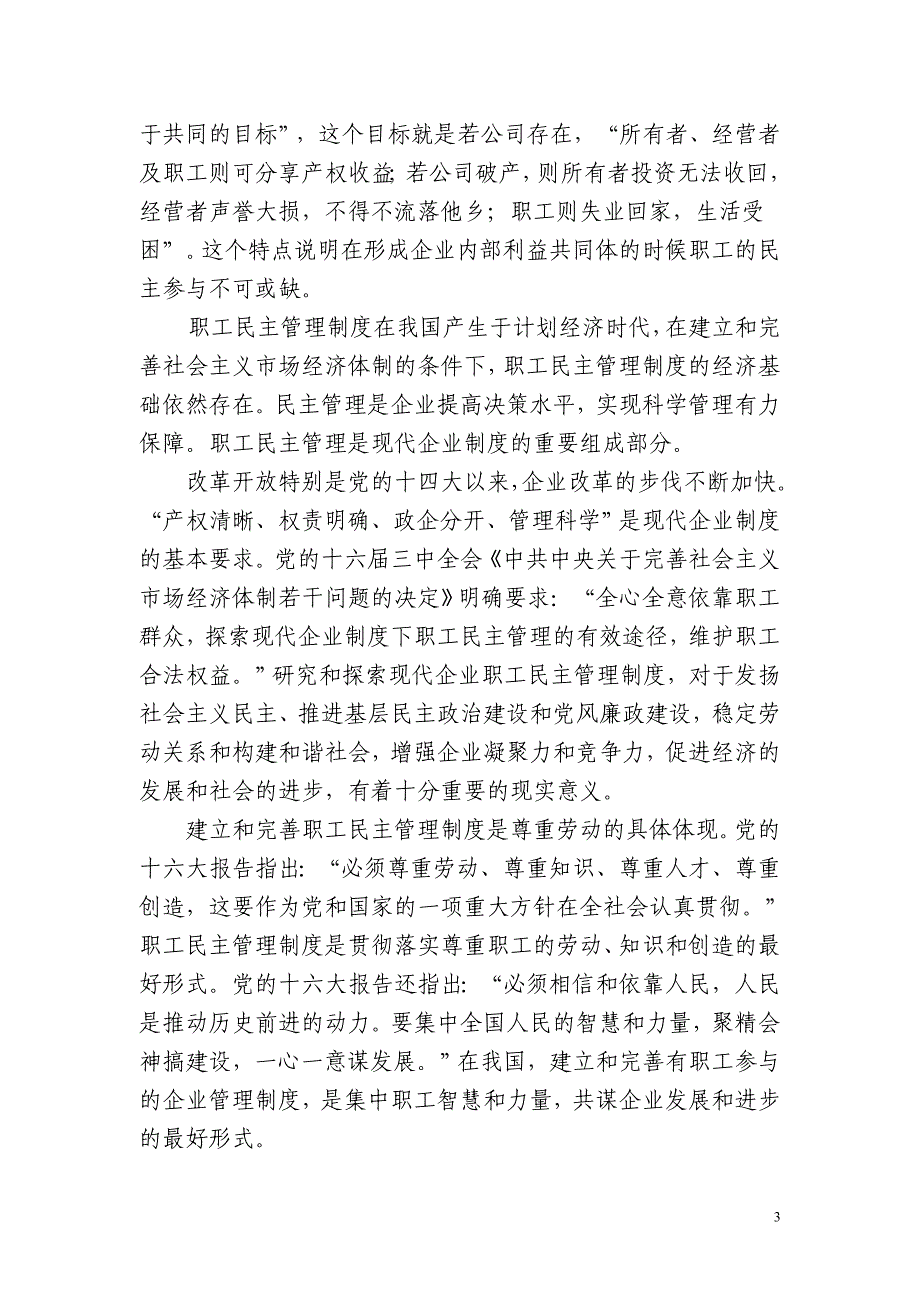 于共同的目标”，这个目标就是若公司存在，“所有者、经营者
及职工则可分享产权收益；若公司破产，则所有者投资无法收回，
经营者声誉大损，不得不流落他乡；职工则失业回家，生活受
困”。这个特点说明在形成企业内部利益共同体的时候职工的民
主参与不可或缺。
职工民主管理制度在我国产生于计划经济时代，在建立和完
善社会主义市场经济体制的条件下，职工民主管理制度的经济基
础依然存在。民主管理是企业提高决策水平，实现科学管理有力
保障。职工民主管理是现代企业制度的重要组成部分。
改革开放特别是党的十四大以来，企业改革的步伐不断加快。
“产权清晰、权责明确、政企分开、管理科学”是现代企业制度
的基本要求。党的十六届三中全会《中共中央关于完善社会主义
市场经济体制若干问题的决定》明确要求：“全心全意依靠职工
群众，探索现代企业制度下职工民主管理的有效途径，维护职工
合法权益。”研究和探索现代企业职工民主管理制度，对于发扬
社会主义民主、推进基层民主政治建设和党风廉政建设，稳定劳
动关系和构建和谐社会，增强企业凝聚力和竞争力，促进经济的
发展和社会的进步，有着十分重要的现实意义。
建立和完善职工民主管理制度是尊重劳动的具体体现。党的
十六大报告指出：“必须尊重劳动、尊重知识、尊重人才、尊重
创造，这要作为党和国家的一项重大方针在全社会认真贯彻。”
职工民主管理制度是贯彻落实尊重职工的劳动、知识和创造的最
好形式。党的十六大报告还指出：“必须相信和依靠人民，人民
是推动历史前进的动力。要集中全国人民的智慧和力量，聚精会
神搞建设，一心一意谋发展。”在我国，建立和完善有职工参与
的企业管理制度，是集中职工智慧和力量，共谋企业发展和进步
的最好形式。
3